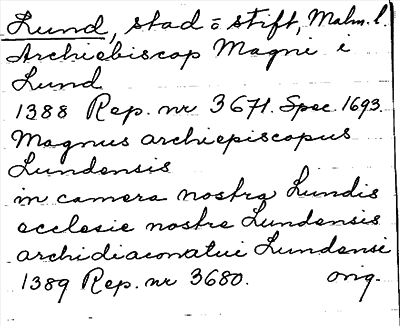 Lund, stad o stift, Malm. l.
Archiebiscop Magni i
Lund
1388 Rep. nr 3671. Spec. 1693.
Magnus archiepiscopus
Lundensis
in camera nostra Lundis
ecclesie nostre Lundensis
archidiaconatui Lundensi
1389 Rep. nr 3680. orig.